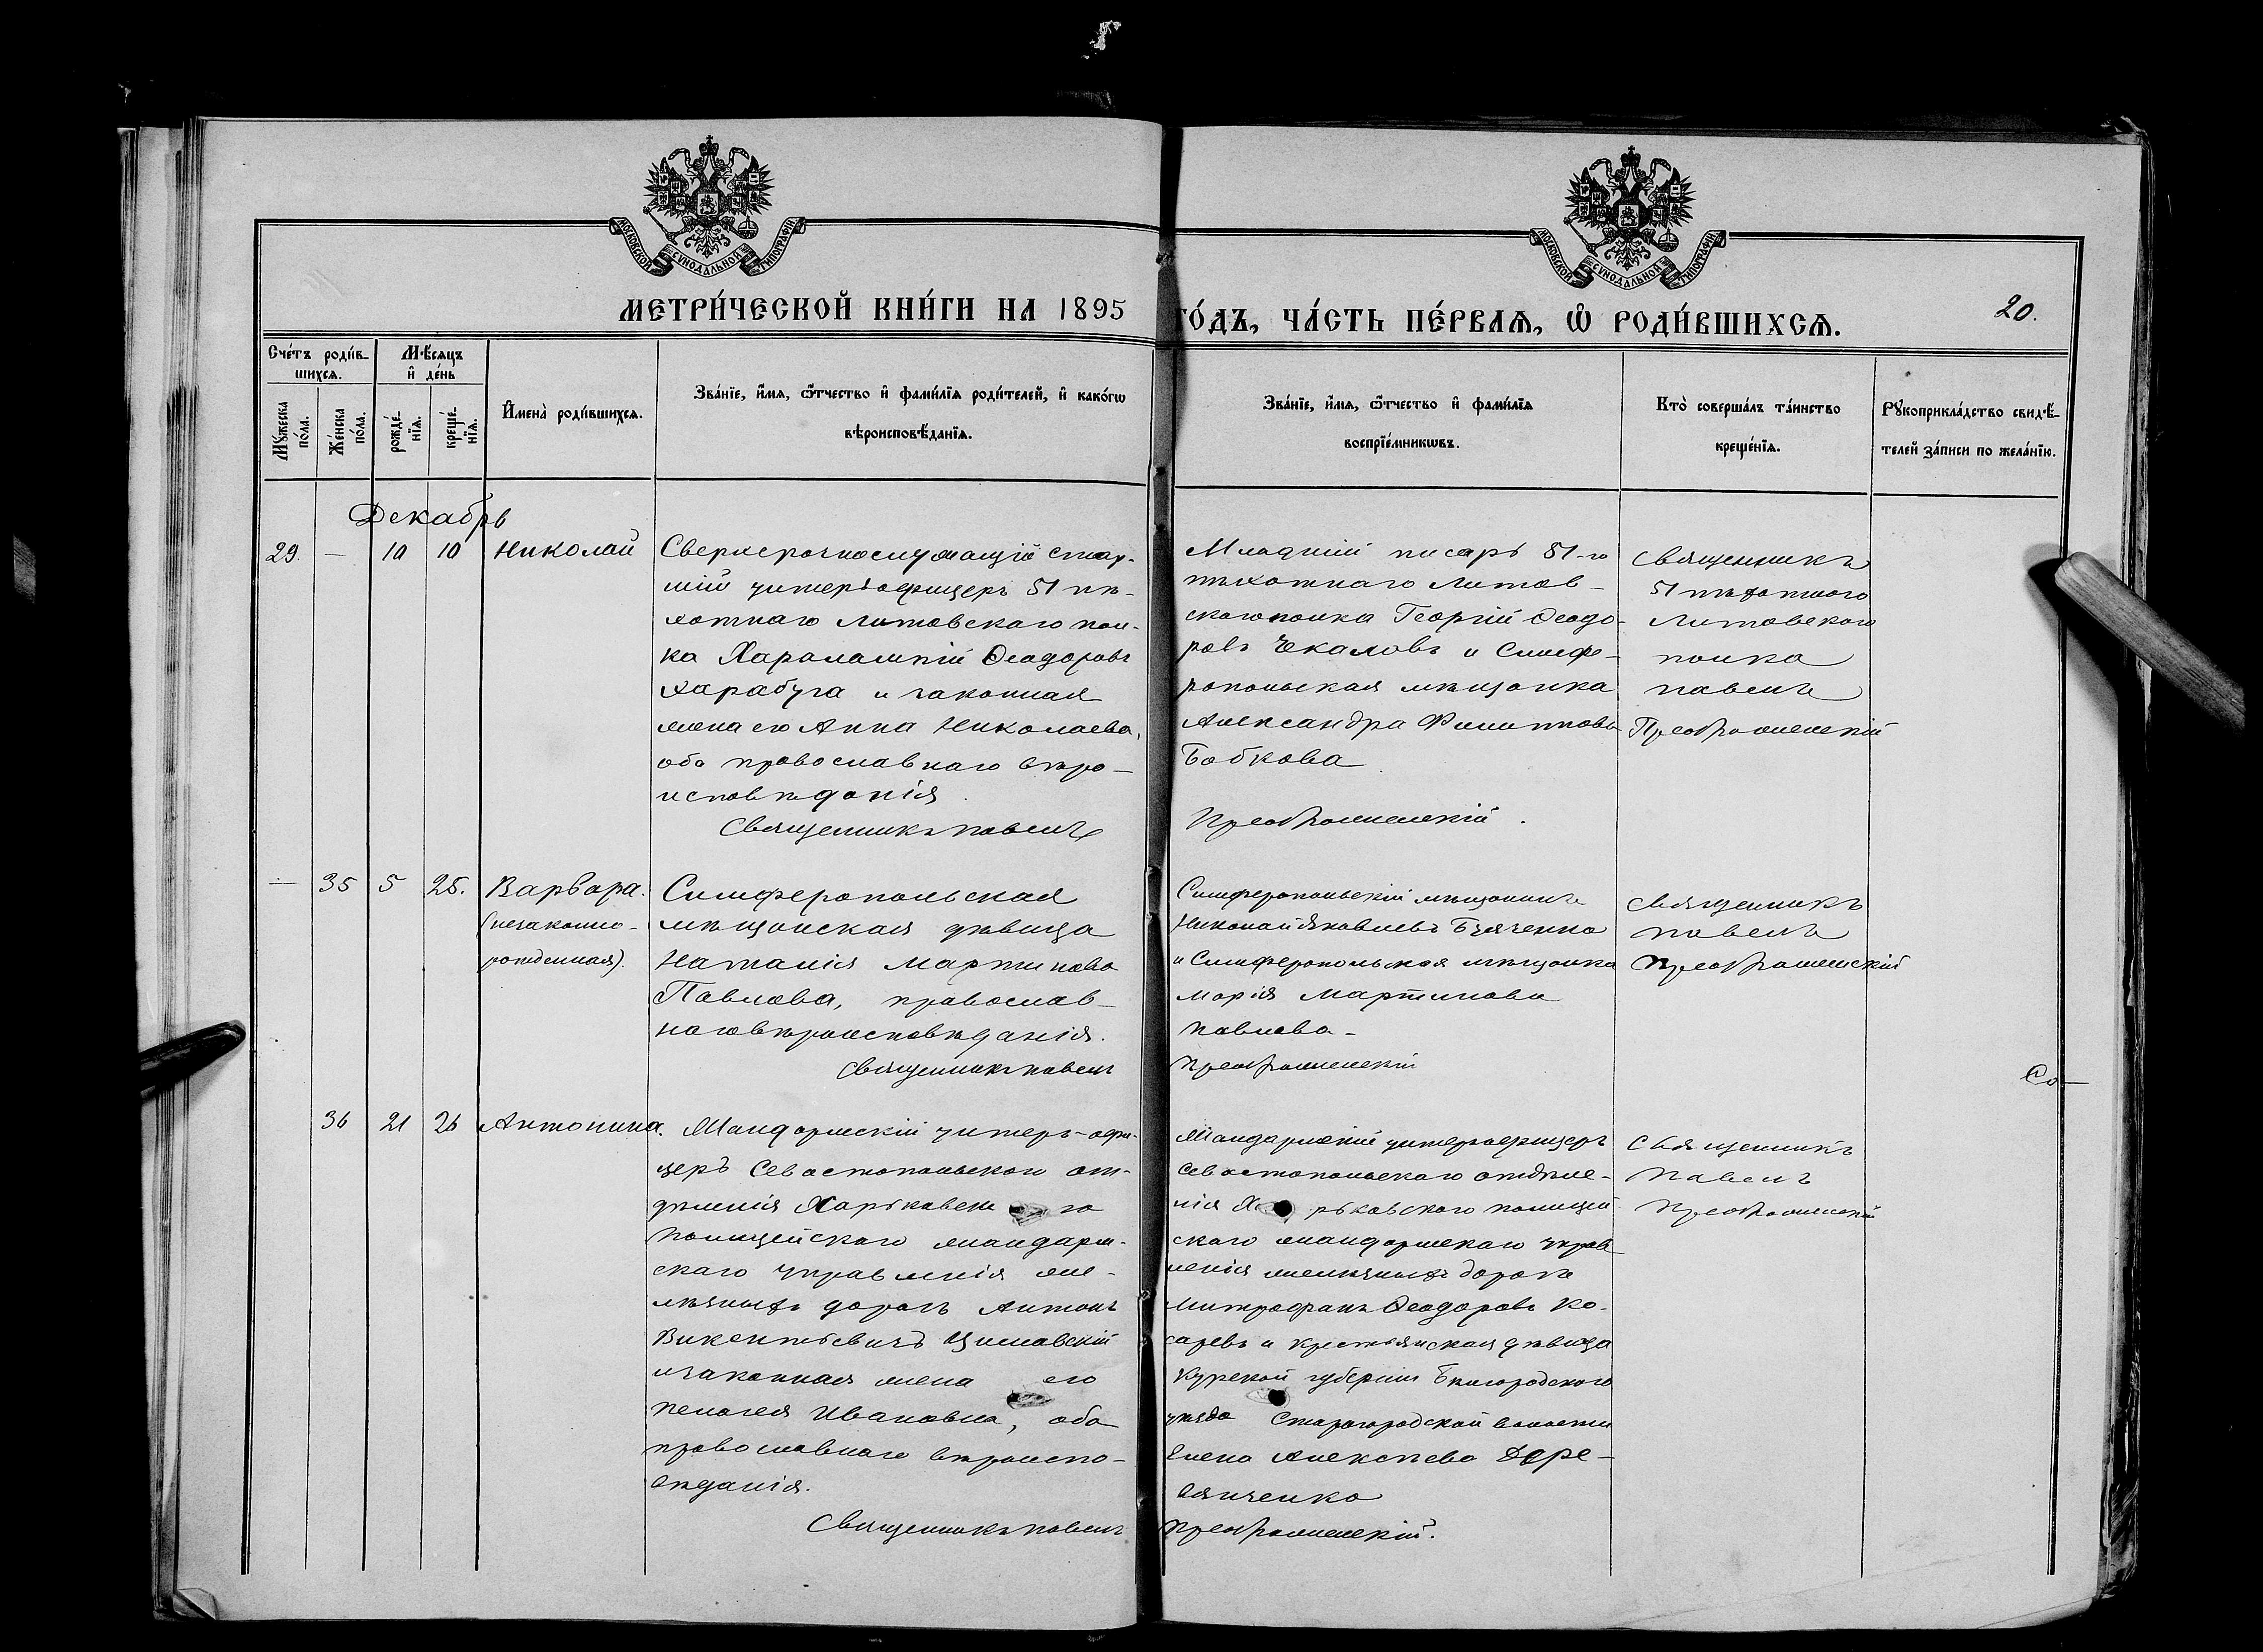 МОСКОВСКОЙ СѴНОДАЛЬНОЙ ТИПОГРАФІИ
МОСКОВСКОЙ СѴНОДАЛЬНОЙ ТИПОГРАФІИ
МЕТРИ́ЧЕСКОЙ КНИ́ГИ НА 1895
ГО́ДЪ, ЧА́СТЬ ПЕ́РВАѦ, Ѡ҆ РОДИ́ВШИХСѦ.
20.
Сче́тъ роди́в-
шихсѧ.
Мѣ́сѧцъ
и҆ де́нь
Мꙋ́жеска
по́ла.
Же́нска
по́ла.
рожде́-
нїѧ.
креще́-
нїѧ.
И҆мена̀ роди́вшихсѧ.
Зва́нїе, и҆́мѧ, ѻ҆́тчество и҆ фами́лїѧ роди́телей, и҆ како́гѡ
вѣроисповѣ́данїѧ.
Зва́нїе, и҆́мѧ, ѻ҆́тчество и҆ фами́лїѧ
воспрїе́мникѡвъ.
Кто̀ соверша́лъ та́инство
креще́нїѧ.
Рꙋкоприкла́дство свидѣ́-
телей за́писи по жела́нїю.
Декабрь
29. — 10 10 Николай
Сверхсрочнослужащій стар-
шій унтеръ-офицеръ 51 пѣ-
хотнаго Литовскаго пол-
ка Харалампій Ѳеодоровъ
Харабуга и законная
жена его Анна Николаева,
оба православнаго вѣро-
исповѣданія.
Священникъ Павелъ
Младшій писарь 51-го
пѣхотнаго Литов-
скаго полка Георгій Ѳеодо-
ровъ Чекаловъ и Симфе-
ропольская мѣщанка
Александра Филиппова
Бобкова
Преображенскій.
Священникъ
51 пѣхотнаго
Литовскаго
полка
Павелъ
Преображенскій
— 35 5 25. Варвара.
(незаконно-
рожденная).
Симферопольская
мѣщанская дѣвица
Наталія Мартинова
Павлова, православ-
наго вѣроисповѣданія.
Священникъ Павелъ
Симферопольскій мѣщанинъ
Николай Яковлевъ
и Симферопольская мѣщанка
Марія Мартинова
Павлова-
Преображенскій
Священникъ
Павелъ
Преображенскій
Со—
36 21 26 Антонина.
Жандармскій унтеръ-офи-
церъ Севастопольскаго от-
дѣленія Харьковскаго
полицейскаго жандарм-
скаго управленія же-
лѣзныхъ дорогъ Антонъ
Викентьевичъ
и законная жена его
Пелагея Ивановна, оба
православнаго вѣроиспо-
вѣданія.
Священникъ Павелъ
Жандармскій унтеръ-офицеръ
Севастопольскаго отдѣле-
нія Харьковскаго полицей-
скаго жандармскаго управ-
ленія желѣзныхъ дорогъ
Митрофанъ Ѳеодоровъ Ко-
саревъ и крестьянская дѣвица
Курской губерніи Бѣлгородскаго
уѣзда Старогородской волости
Елена Алексѣева Дере-
вянченко
Преображенскій.
Священникъ
Павелъ
Преображенскій